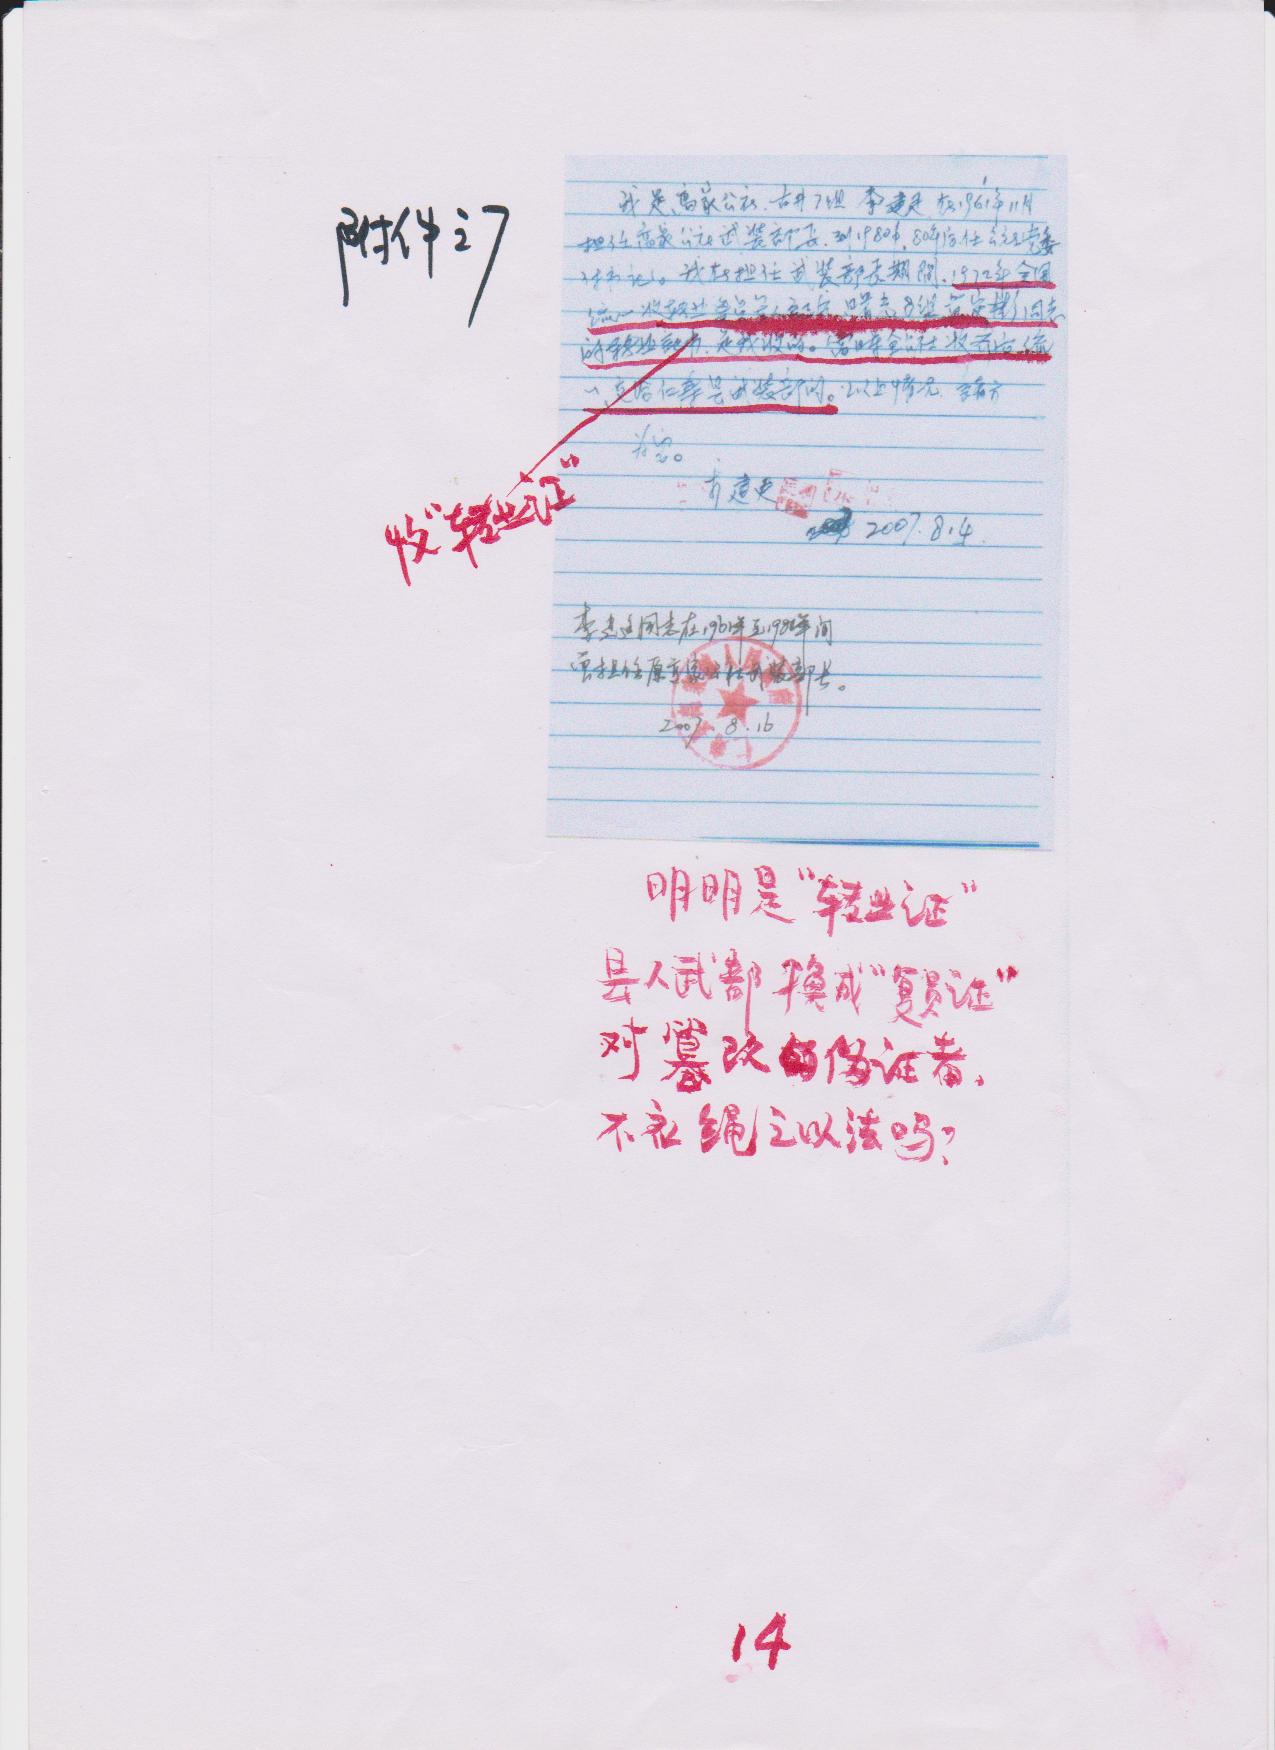 附件之7
我是高家公社古井7组李建廷在1961年11月
担任高家公社武装部长，到1980年，80年后任公社党委
付书记。我在担任武装部长期间，1972年全国
统一收转业同志
的转业证书，是我收的。当时全公社收齐后统
一交给仁寿县武装部的。以上情况
为容。
2007.8.4.
收"转业证"
李建廷同志在1961年至1980年间
曾担任原高家公社武装部长。
2007.8.16
明明是"转业证"
县人武部换成"复员证"
对篡改的伪证者、
不衣绳之以法吗？
14